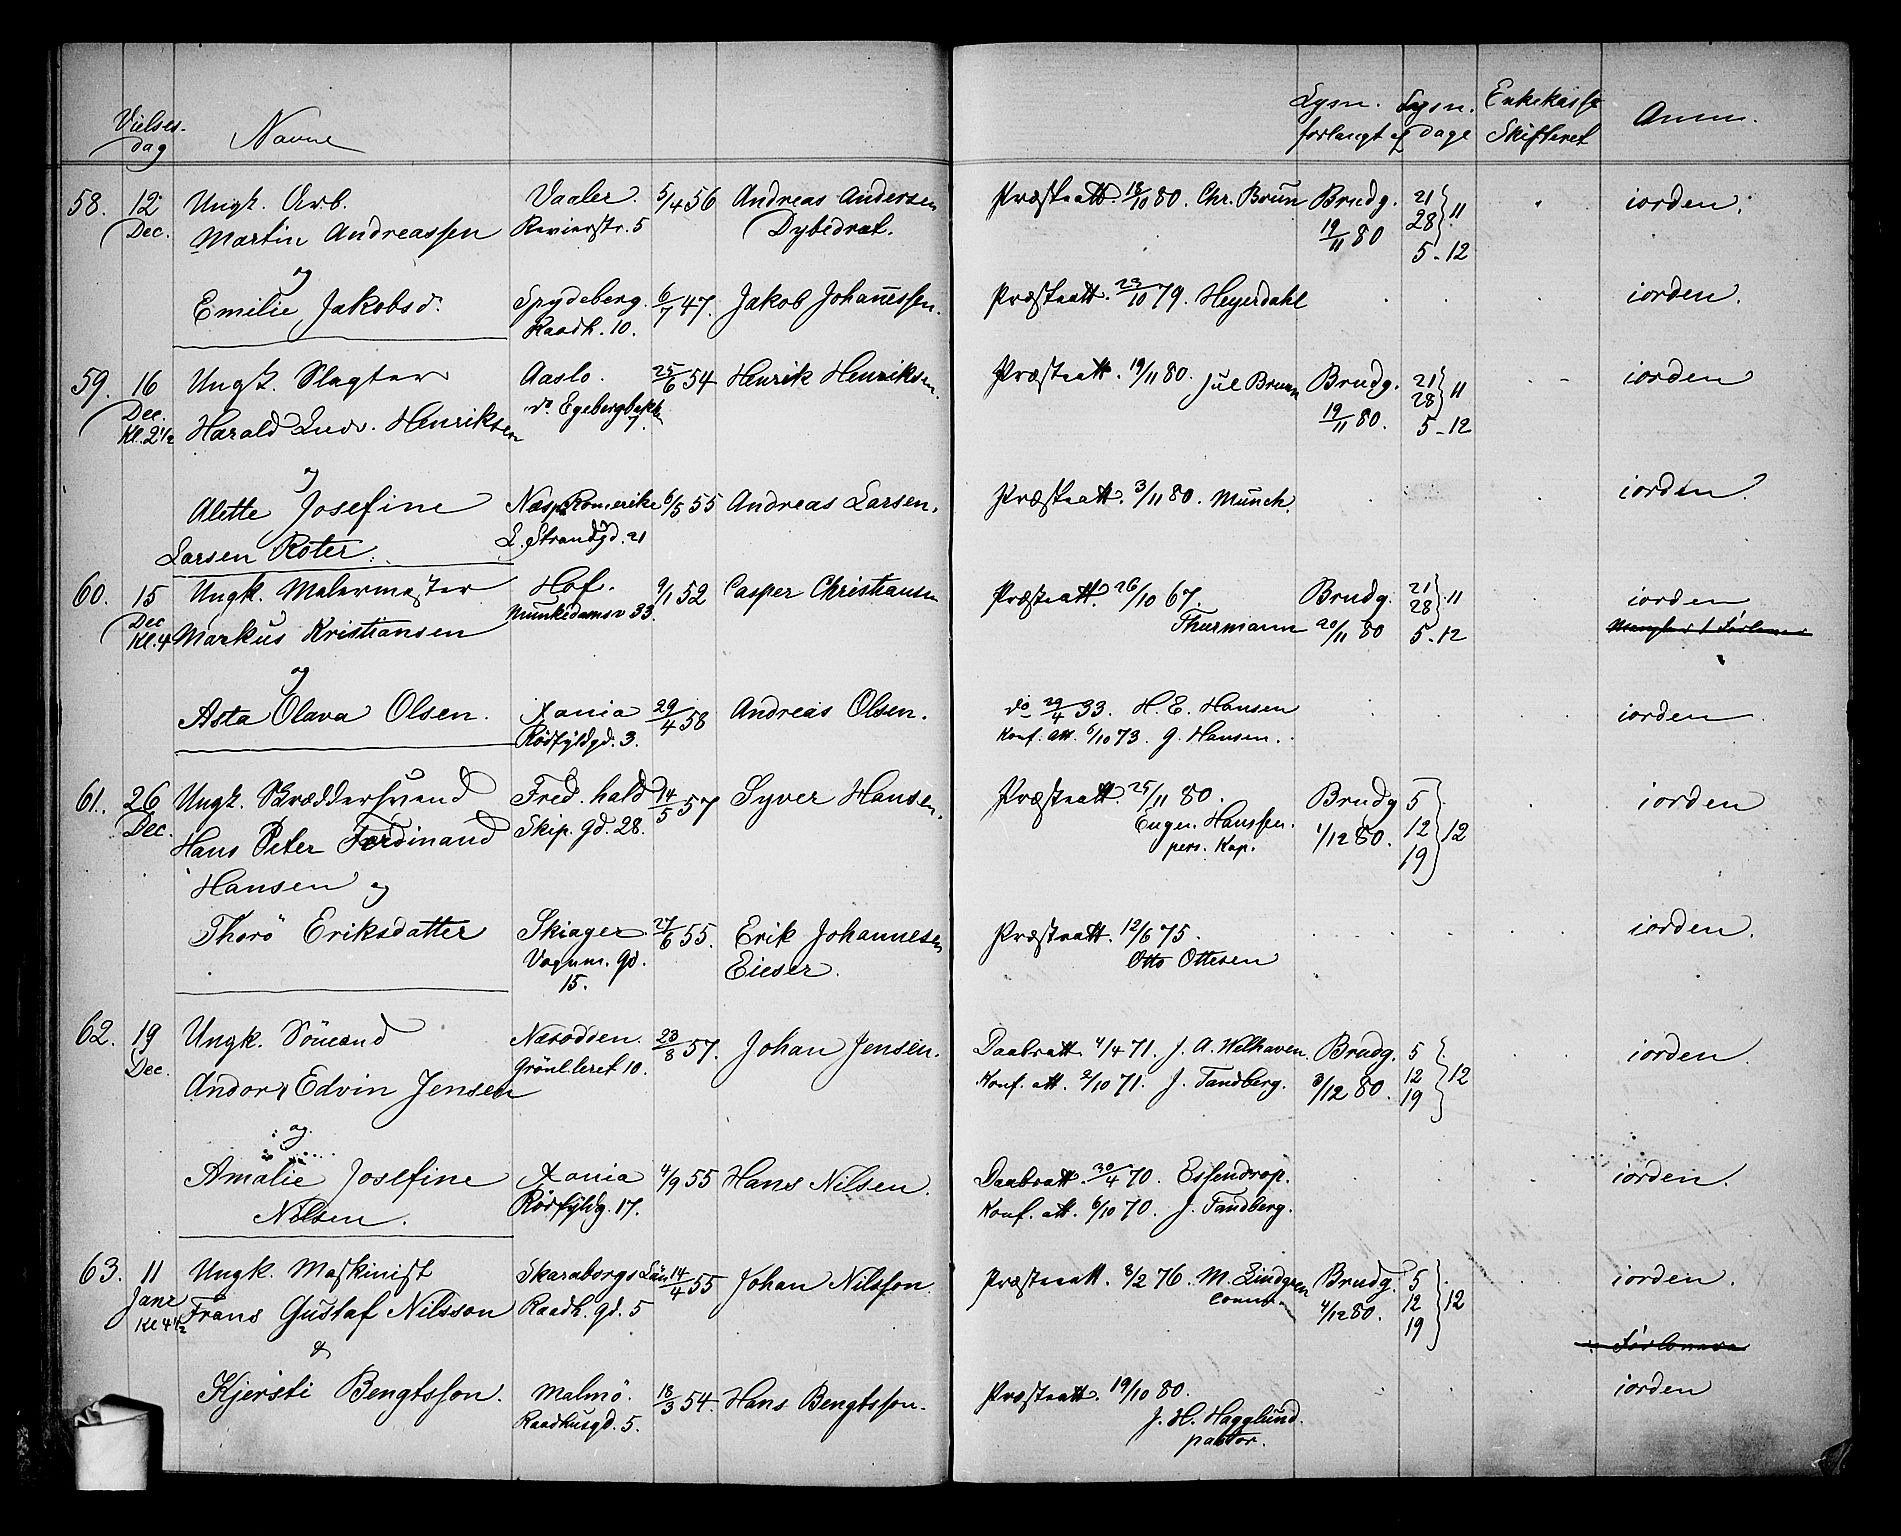 Vielses- Navne Lysn. Lysn. Enkekasse Anm.
dag forlangt af dage Skifteret
58. 12 Ungk. Arb. Vaaler. 5/4 56 Andreas Andersen Præsteatt. 18/10 80. Chr. Brun Brudg. 21 } 11 iorden.
Dec. Martin Andreassen Revierstr. 5 Dybedraet. 19/11 80 28
5-12
og
Emilie Jakobsd. Spydeberg. 6/7 47. Jakob Johannessen. Præsteatt. 23/10 79. Heyerdahl iorden.
Raadh. 10.
59. 16 Ungk. Slagter Aaslo. 25/6 54 Henrik Henriksen. Præsteatt. 19/11 80. Jul Bruun Brudg. 21 } 11 iorden
Dec. Harald Ludv. Henriksen do Egebergbakk. 19/11 80. 28
Kl. 2 1/2 5-12
og
Alette Josefine Næs p. Romerike 6/5 55 Andreas Larsen. Præsteatt. 3/11 80. Münch. iorden.
Larsen Roter. L. Strandgd. 21
60. 15 Ungk. Malermester Hof. 9/1 52 Casper Christiansen Præsteatt. 26/10 67. Brudg. 21 } 11 iorden
Dec Markus Kristiansen Munkedamsv 33. Thurmann 20/11 80 28
Kl. 4 5-12 Mangler 1 Forlover
og
Asta Olava Olsen. Xania 29/4 58 Andreas Olsen. do 29/4 33. H. E. Hansen iorden
Rödfyldgd. 3. Konf. att. 6/10 73. G. Hansen.
61. 26 Ungk. Skræddersvend Fred. hald 14/5 57 Syver Hansen. Præsteatt. 25/11 80. Brudg 5 } 12 iorden
Dec. Hans Peter Ferdinand Skip. gd. 28. Eugen. Hanssen. 1/12 80. 12
pers. Kap. 19
Hansen og
Thorö Eriksdatter Skiager 27/6 55. Erik Johannesen Præsteatt. 12/6 75. iorden.
Vognm. gd. Eieser. Otto Ottesen
15.
62. 19 Ungk. Sömand Næsodden. 23/8 57. Johan Jensen. Daabsatt. 4/4 71. J. A. Welhaven Brudg. 5 } 12 iorden
Dec. Andor Edvin Jensen Grönl.leret 10. Konf. att. 2/10 71. J. Tandberg. 3/12 80. 12
19
og
Amalie Josefine Xania 4/9 55 Hans Nilsen. Daabsatt. 30/4 70. Essendrop. iorden.
Nilsen. Rödfyldg. 17. Konf. att. 6/10 70. J. Tandberg.
63. 11 Ungk. Maskinist Skaraborgs Län 14/4 55 Johan Nilsson. Præsteatt. 8/2 76. M. Lindgren Brudg. 5 } 12 iorden.
Janr Frans Gustaf Nilsson Raadh. gd. 5 Comm. 4/12 80. 12
Kl 4 1/2 19
& Forlovere
Kjersti Bengtsson. Malmö. 18/3 54. Hans Bengtsson. Præsteatt. 19/10 80. iorden
Raadhusgd. 5. J. H. Hagglund.
pastor.